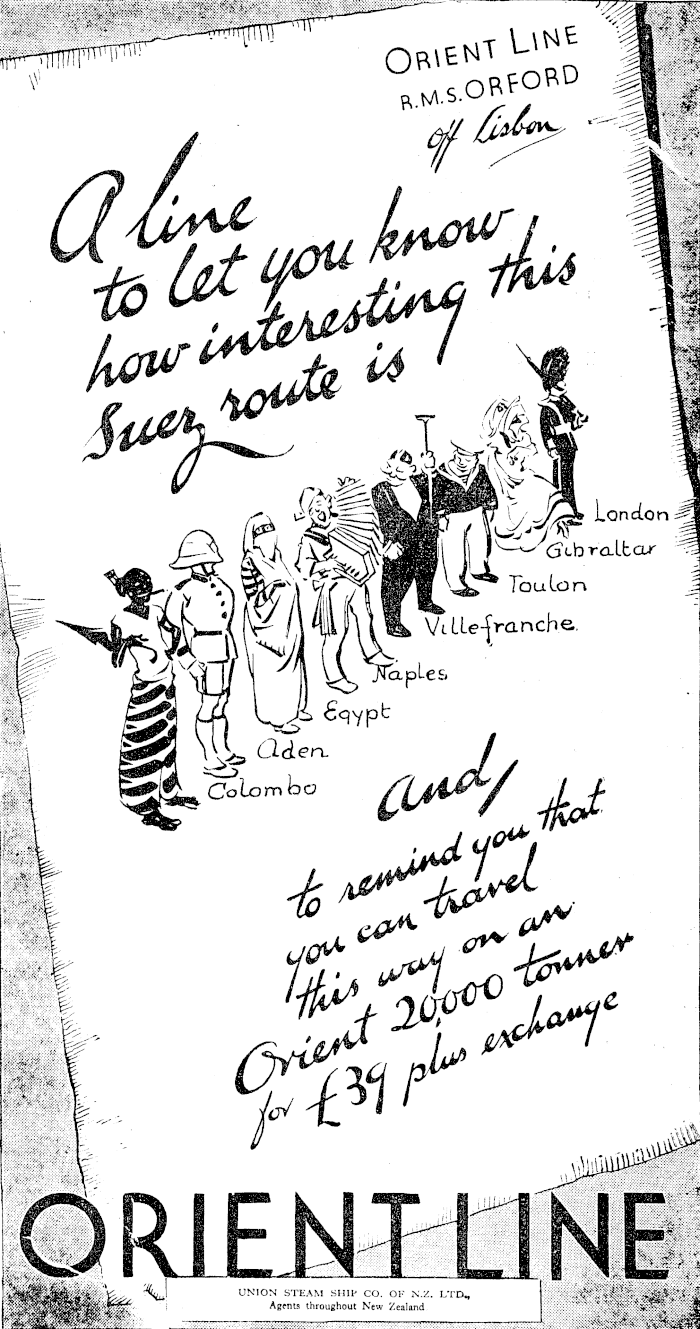 ORIENT LINE
R.M.S. ORFORD
off Lisbon
A line
to let you know
how interesting this
Suez route is
London
Gibraltar
Toulon
Villefranche.
Naples
Egypt
Aden
Colombo
and,
to remind you that
you can travel
this way on an
Orient 20,000 tonner
for £39 plus exchange
ORIENT LINE
UNION STEAM SHIP CO. OF N.Z. LTD.,
Agents throughout New Zealand